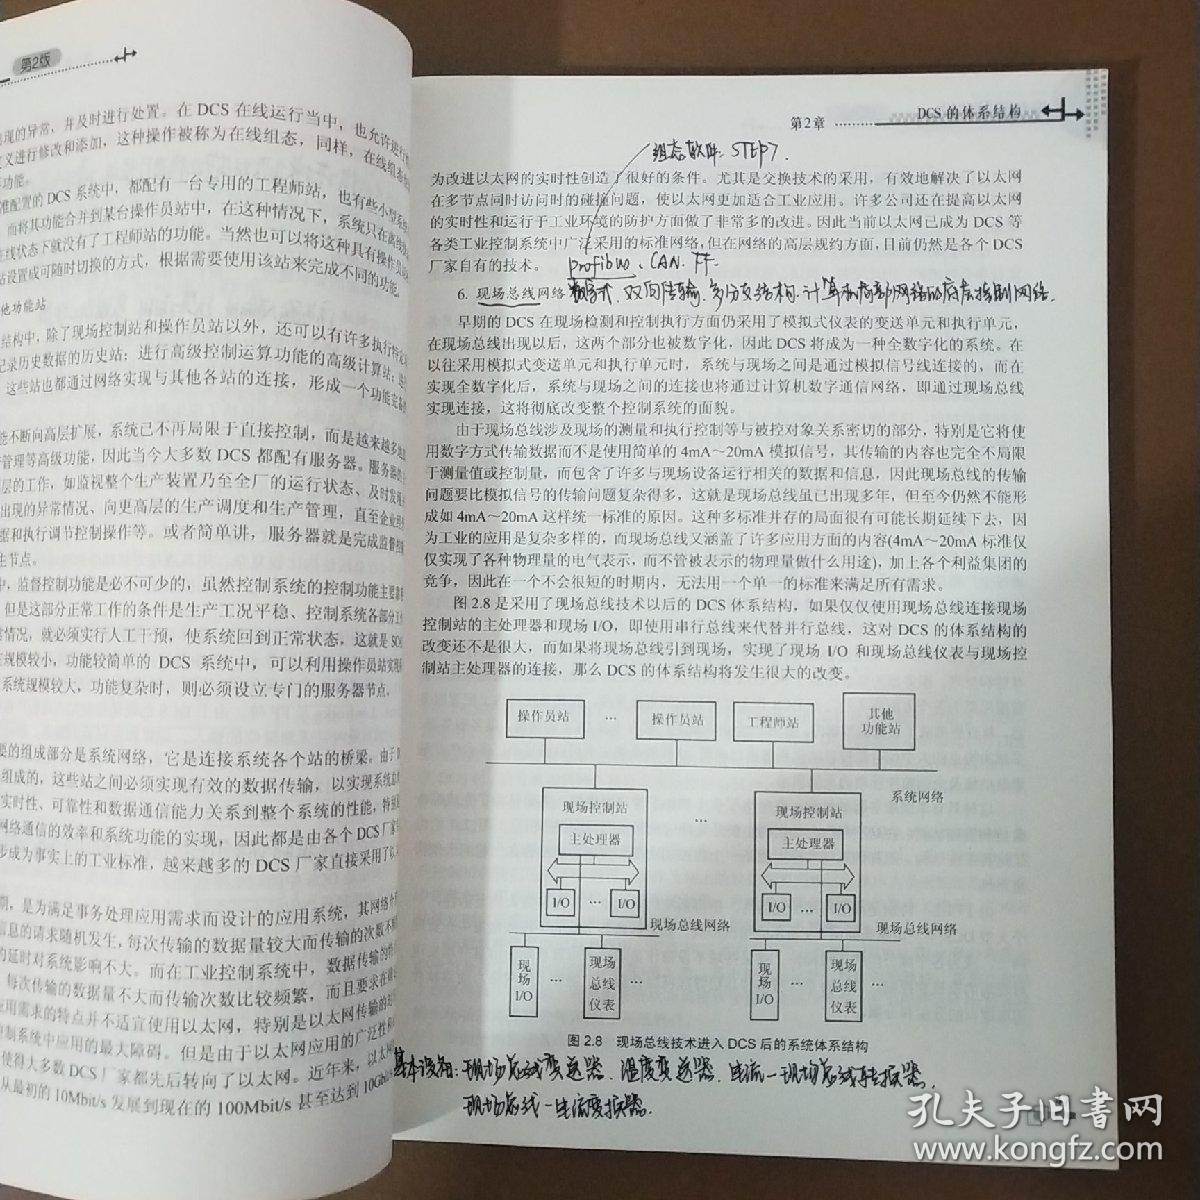 第2版
出现的异常，并及时进行处置。在 DCS 在线运行当中，也允许进行
义进行修改和添加，这种操作被称为在线组态，同样，在线组态
功能。
配置的 DCS 系统中，都配有一台专用的工程师站，也有些小型系统
而将其功能合并到某台操作员站中，在这种情况下，系统只在离线
在线状态下就没有了工程师站的功能。当然也可以将这种具有操作员
站设置成可随时切换的方式，根据需要使用该站来完成不同的功能。
他功能站
结构中，除了现场控制站和操作员站以外，还可以有许多执行特定
记录历史数据的历史站；进行高级控制运算功能的高级计算站；
这些站也都通过网络实现与其他各站的连接，形成一个功能完
能不断向高层扩展，系统已不再局限于直接控制，而是越来越多地
管理等高级功能，因此当今大多数 DCS 都配有服务器。服务器的
层的工作，如监视整个生产装置乃至全厂的运行状态、及时发现
出现的异常情况、向更高层的生产调度和生产管理，直至企业
据和执行调节控制操作等。或者简单讲，服务器就是完成监督
主节点。
中，监督控制功能是必不可少的，虽然控制系统的控制功能主要
但是这部分正常工作的条件是生产工况平稳、控制系统各部分
情况，就必须实行人工干预，使系统回到正常状态，这就是
在规模较小，功能较简单的 DCS 系统中，可以利用操作员站实现
系统规模较大，功能复杂时，则必须设立专门的服务器节点。
要的组成部分是系统网络，它是连接系统各个站的桥梁。由于
组成的，这些站之间必须实现有效的数据传输，以实现系统
实时性、可靠性和数据通信能力关系到整个系统的性能，特别
网络通信的效率和系统功能的实现，因此都是由各个 DCS 厂
步成为事实上的工业标准，越来越多的 DCS 厂家直接采用了
期，是为满足事务处理应用需求而设计的应用系统，其网络
信息的请求随机发生，每次传输的数据量较大而传输的次数不
的延时对系统影响不大。而在工业控制系统中，数据传输的
每次传输的数据量不大而传输次数比较频繁，而且要求在
应用需求的特点并不适宜使用以太网，特别是以太网传输的
制系统中应用的最大障碍。但是由于以太网应用的广泛性和
使得大多数 DCS 厂家都先后转向了以太网。近年来，以太网
从最初的 10Mbit/s 发展到现在的 100Mbit/s 甚至达到 10Gbit/s
第2章 DCS 的体系结构
组态软件：STEP7.
为改进以太网的实时性创造了很好的条件。尤其是交换技术的采用，有效地解决了以太网
在多节点同时访问时的碰撞问题，使以太网更加适合工业应用。许多公司还在提高以太网
的实时性和运行于工业环境的防护方面做了非常多的改进。因此当前以太网已成为 DCS 等
各类工业控制系统中广泛采用的标准网络，但在网络的高层规约方面，目前仍然是各个 DCS
厂家自有的技术。 profibus、CAN. FF.
6. 现场总线网络 数字式、双向传输、多分支结构、计算机局部网络的底层控制网络.
早期的 DCS 在现场检测和控制执行方面仍采用了模拟式仪表的变送单元和执行单元，
在现场总线出现以后，这两个部分也被数字化，因此 DCS 将成为一种全数字化的系统。在
以往采用模拟式变送单元和执行单元时，系统与现场之间是通过模拟信号线连接的，而在
实现全数字化后，系统与现场之间的连接也将通过计算机数字通信网络，即通过现场总线
实现连接，这将彻底改变整个控制系统的面貌。
由于现场总线涉及现场的测量和执行控制等与被控对象关系密切的部分，特别是它将使
用数字方式传输数据而不是使用简单的 4mA～20mA 模拟信号，其传输的内容也完全不局限
于测量值或控制量，而包含了许多与现场设备运行相关的数据和信息，因此现场总线的传输
问题要比模拟信号的传输问题复杂得多，这就是现场总线虽已出现多年，但至今仍然不能形
成如 4mA～20mA 这样统一标准的原因。这种多标准并存的局面很有可能长期延续下去，因
为工业的应用是复杂多样的，而现场总线又涵盖了许多应用方面的内容(4mA～20mA 标准仅
仅实现了各种物理量的电气表示，而不管被表示的物理量做什么用途)，加上各个利益集团的
竞争，因此在一个不会很短的时期内，无法用一个单一的标准来满足所有需求。
图 2.8 是采用了现场总线技术以后的 DCS 体系结构，如果仅仅使用现场总线连接现场
控制站的主处理器和现场 I/O，即使用串行总线来代替并行总线，这对 DCS 的体系结构的
改变还不是很大，而如果将现场总线引到现场，实现了现场 I/O 和现场总线仪表与现场控
制站主处理器的连接，那么 DCS 的体系结构将发生很大的改变。
操作员站 … 操作员站 工程师站 其他
功能站
系统网络
现场控制站 … 现场控制站
主处理器 主处理器
I/O … I/O I/O … I/O
现场总线网络 现场总线网络
现场I/O … 现场总线仪表 … 现场I/O … 现场总线仪表 …
图 2.8 现场总线技术进入 DCS 后的系统体系结构
基本设备：现场总线变送器、温度变送器、电流—现场总线转换器、
现场总线—电流变换器.
孔夫子旧书网
www.kongfz.com